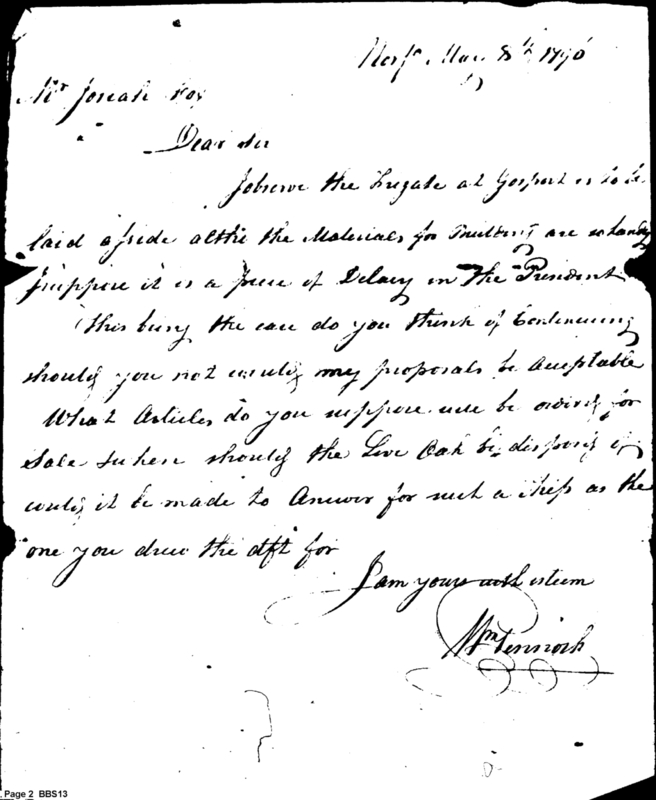 Norfk Mar 8th 1796
Mr Josiah Fox
Dear Sir
I observe the Frigate at Gosport is to be
laid aside altho the Materials for Building are so handy
I suppose it is a piece of Delacy in the President
This being the case do you think of Continuing
should you not would my proposals be Acceptable
What Articles do you suppose will be ordered for
Sale & when should the Live Oak be disposed of
could it be made to Answer for such a ship as the
one you drew the dft for
I am yours with esteem
Wm Pennock
Page 2 BBS13